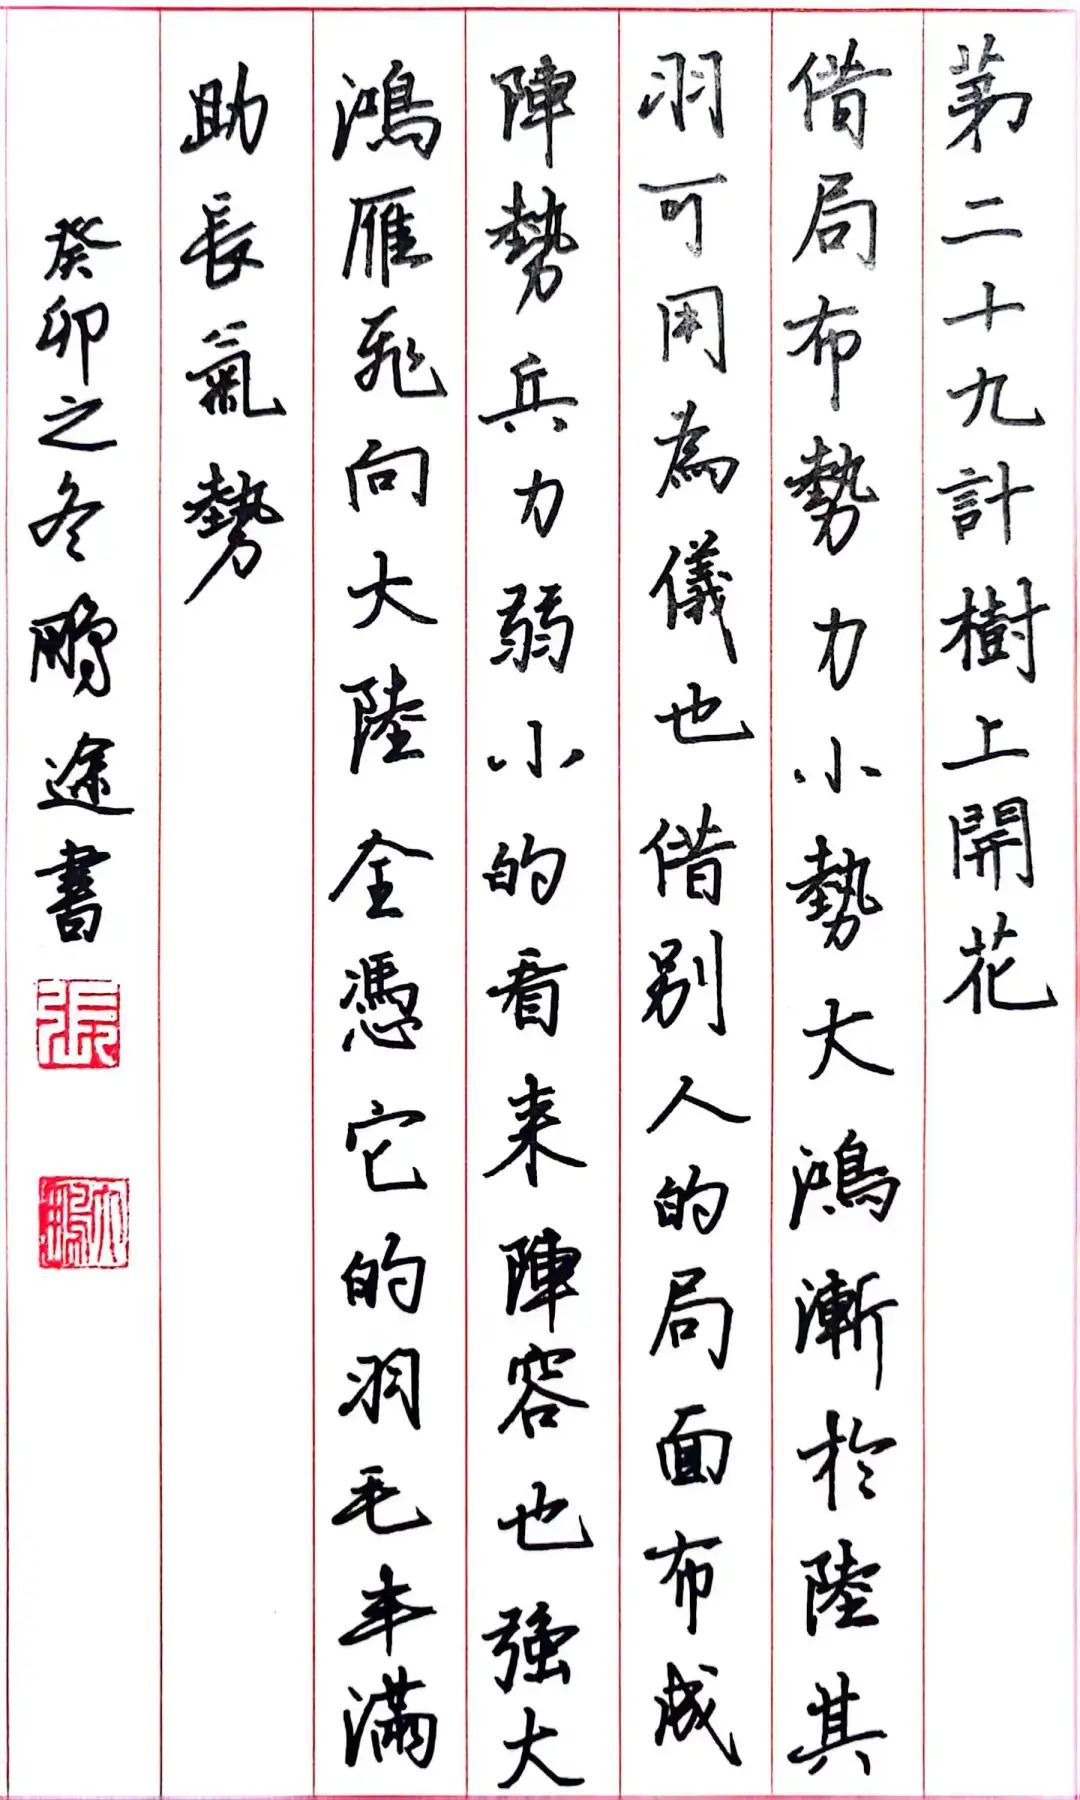 第二十九計樹上開花
借局布勢力小勢大鴻漸於陸其
羽可用為儀也借別人的局面布成
陣勢兵力弱小的看来陣容也強大
鴻雁飛向大陸全憑它的羽毛丰滿
助長氣勢
癸卯之冬鵬途書
張